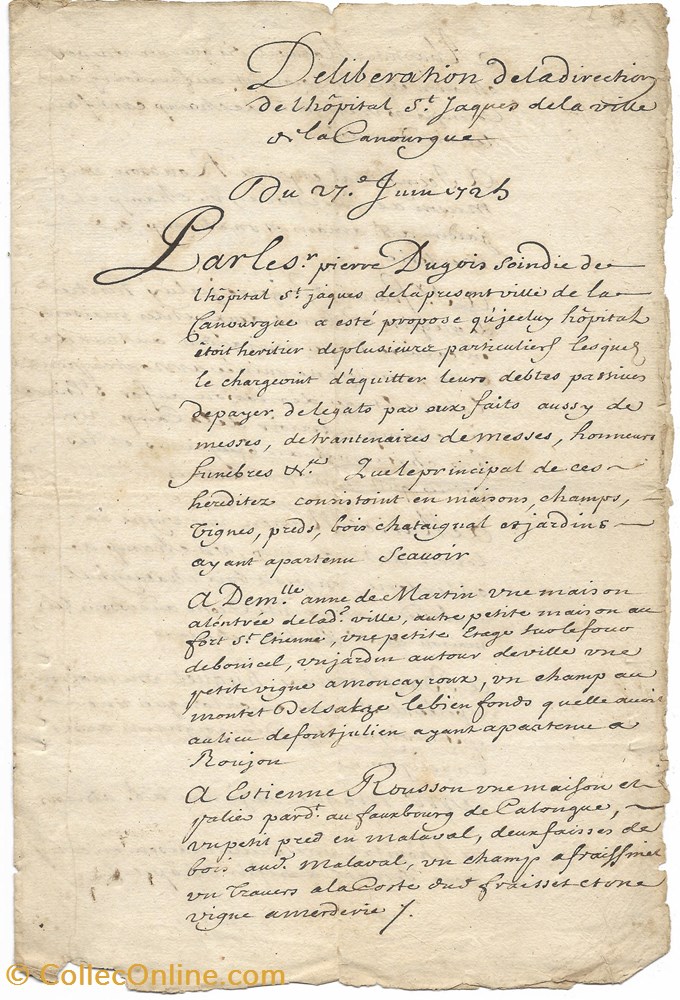 Deliberation de la direction
de l'hôpital St. Jaques de la ville
de la Canourgue
Du 27.e Juin 1725
Par le sr. pierre Dugois Scindic de
l'hôpital St. jaques de la present ville de la
Canourgue a esté proposé qu'jceluy hôpital
étoit heritier de plusieurs particuliers lesquels
le chargeoint d'aquitter leurs debtes passives
de payer de legats par eux faits aussy de
messes, de trantenaires de messes, honneurs
funebres &c. Que le principal de ces
hereditez consistoint en maisons, champs,
vignes, preds, bois chataigual et jardins
ayant apartenu Scavoir
A Dem.lle anne de Martin vne maison
a l'entrée de lad. ville, autre petite maison au
fort St. Etienne, vne petite Etage sur le four
de bonicel, vn jardin autour de ville vne
petite vigne a moncayroux, vn champ au
montet le bien fonds quelle avoit
au lieu de fontjulien ayant apartenu a
Roujon
A Estienne Rousson vne maison et
palie par d. au fauxbourg de Calongue,
vn petit pred en malaval, deux faisses de
bois aud. malaval, vn champ a fraissinet
vn Travers a la Coste dud. fraisset et vne
vigne a merderic /.
© CollecOnline.com